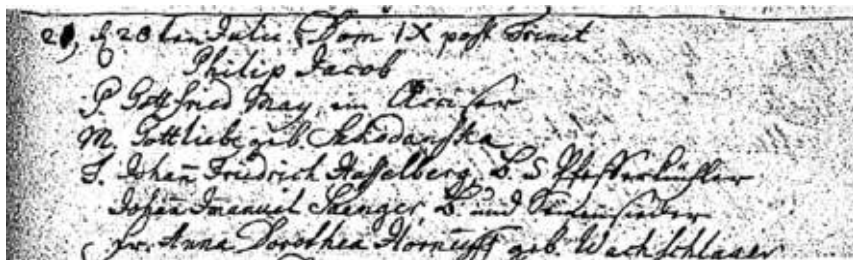 d 28ten Julii, Dom IX post Trinit
Philip Jacob
P. Gottfried May, ein Acciser
M. Gottliebe geb.
T. Johan̅ Friedrich Hasselberg, B. Pfefferküchler
Johan̅ Imanuel Saenger, B. und Seifensieder
Fr. Anna Dorothea geb. Wachschlager